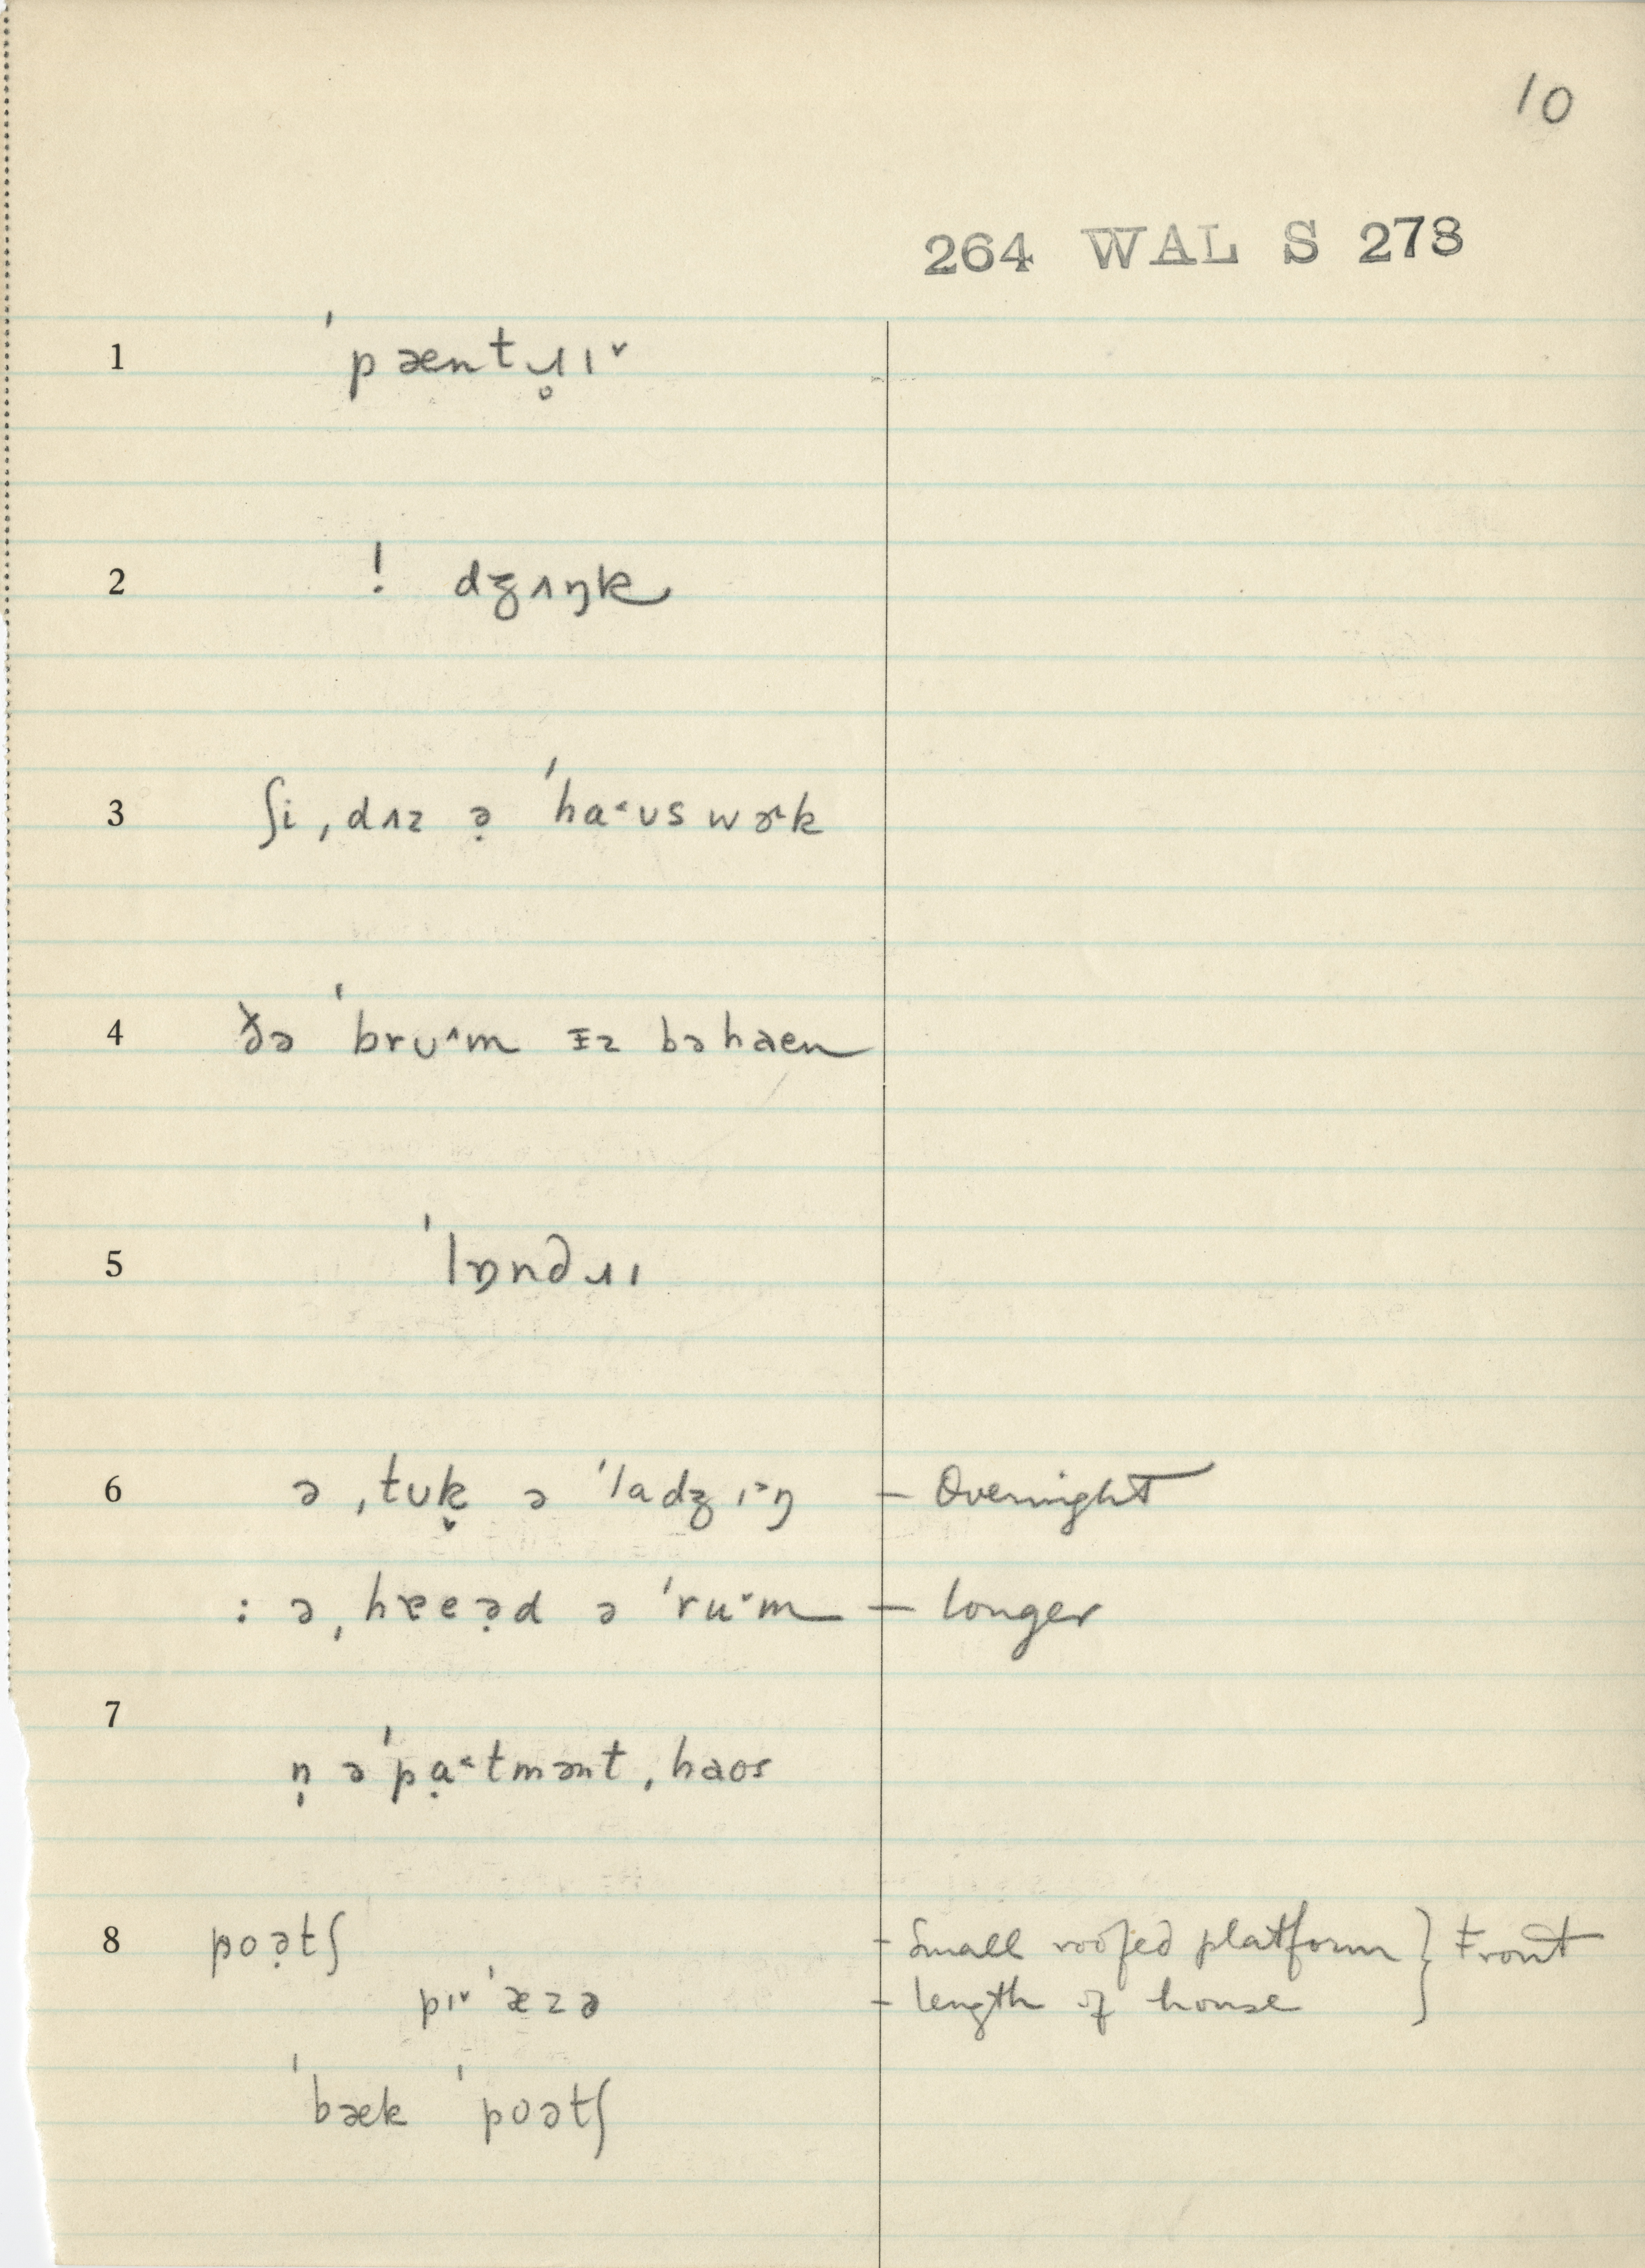 10
264 WAL S 273
1 ˈpæntɹ̥ɪ˅
2 ! dʒʌŋk
3 ʃi ˌdʌz ə̣ ˈha˂ʊs wɚk
4 ðə ˈbrʊ˄m ɪz bəhaen
5 ˈlɒndɹɪ
6 ə ˌtʊk̬ ə ˈladʒɪ˃ŋ – Overnight
: ə ˌhɐeə̣d ə ˈru˅m – longer
7
n̩ əˈpạ˂tmənt ˌhaos
8 poə̣tʃ – Small roofed platform } Front
pɪ˅ˈæzə – length of house
ˈbæk ˈpoətʃ